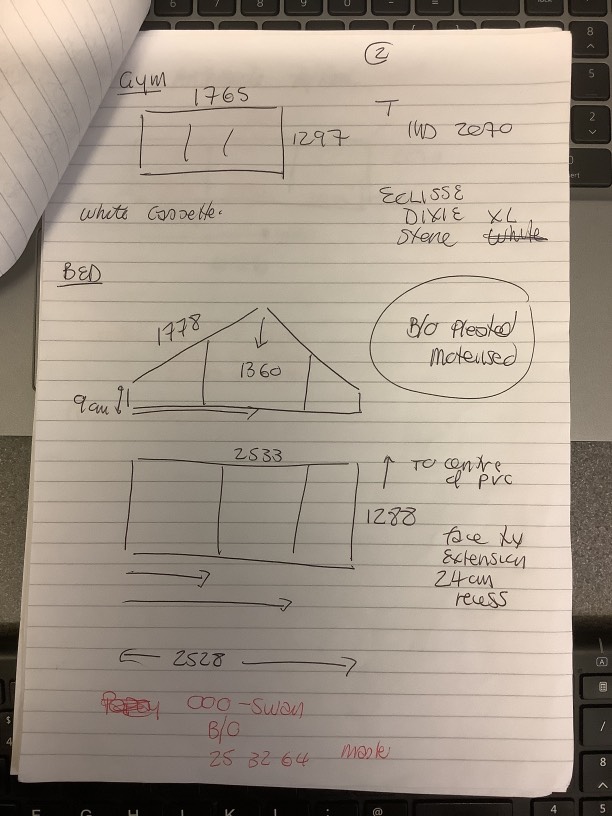 2
Gym
1765
1297
T
IND 2070
White Cassette.
ECLISSE
DIXIE XL
Stone White
BED
1778
1360
9cm
B/O Pleated
Motorised
2533
1288
TO centre
of PVC
face fix
Extension
24cm
recess
2528
000 - Swan
B/O
25 32 64